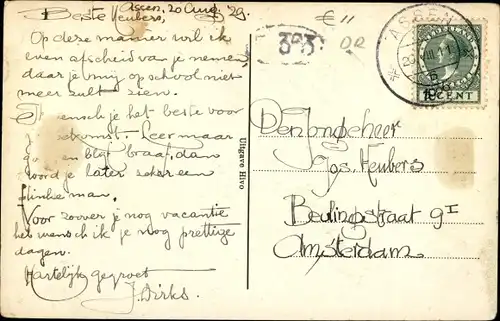 Assen, 20 Aug. '29.
Beste Keubers,
Op deze manier wil ik
even afscheid van je nemen,
daar je mij op school niet
meer zult zien.
Ik wensch je het beste voor
de toekomst. Leer maar
goed en blijf braaf, dan
word je later zeker een
flinke man.
Voor zoover je nog vacantie
heb wensch ik je nog prettige
dagen.
Hartelijk gegroet
J. Dirks.
Uitgave Hivo
€ 11
393
DR
ASSEN
10 CENT
Den Jongeheer
Jos. Keubers
Beulingstraat 9 I
Amsterdam